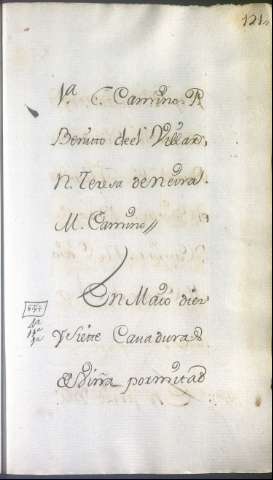 121
1ª C. Camino. P.
Benito del Villar,
N. Teresa de Neira.
M. Camino //
En Maio diez
y siette Cavadura
Viña por mitad